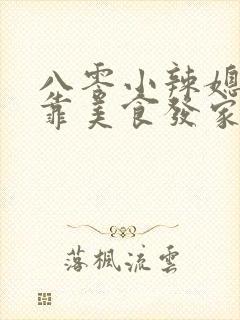 八零小辣媳
靠美食發家
落楓流雲